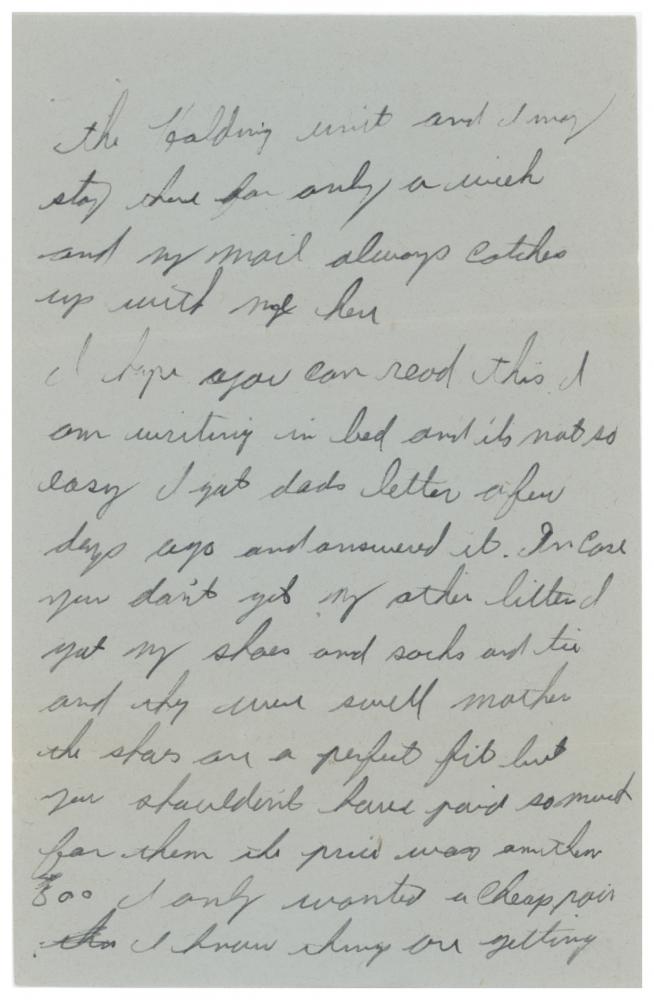 the Holding unit and I may
stay there for only a week
and my mail always catches
up with me here
I hope you can read this I
am writing in bed and its not so
easy I got dads letter a few
days ago and answered it. In case
you don't get my other letter I
got my shoes and socks and tie
and they were swell mother
the shoes are a perfect fit but
you shouldn't have paid so much
for them the price was on them
800 I only wanted a cheap pair
I know things are getting